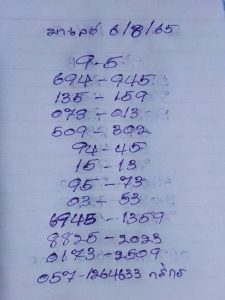 มาเลย์ 6/8/65
9-5
694-945
135-159
073-013
509-302
94-45
15-13
95-73
03-53
6945-1359
8825-2023
0173-2509
057-1264633